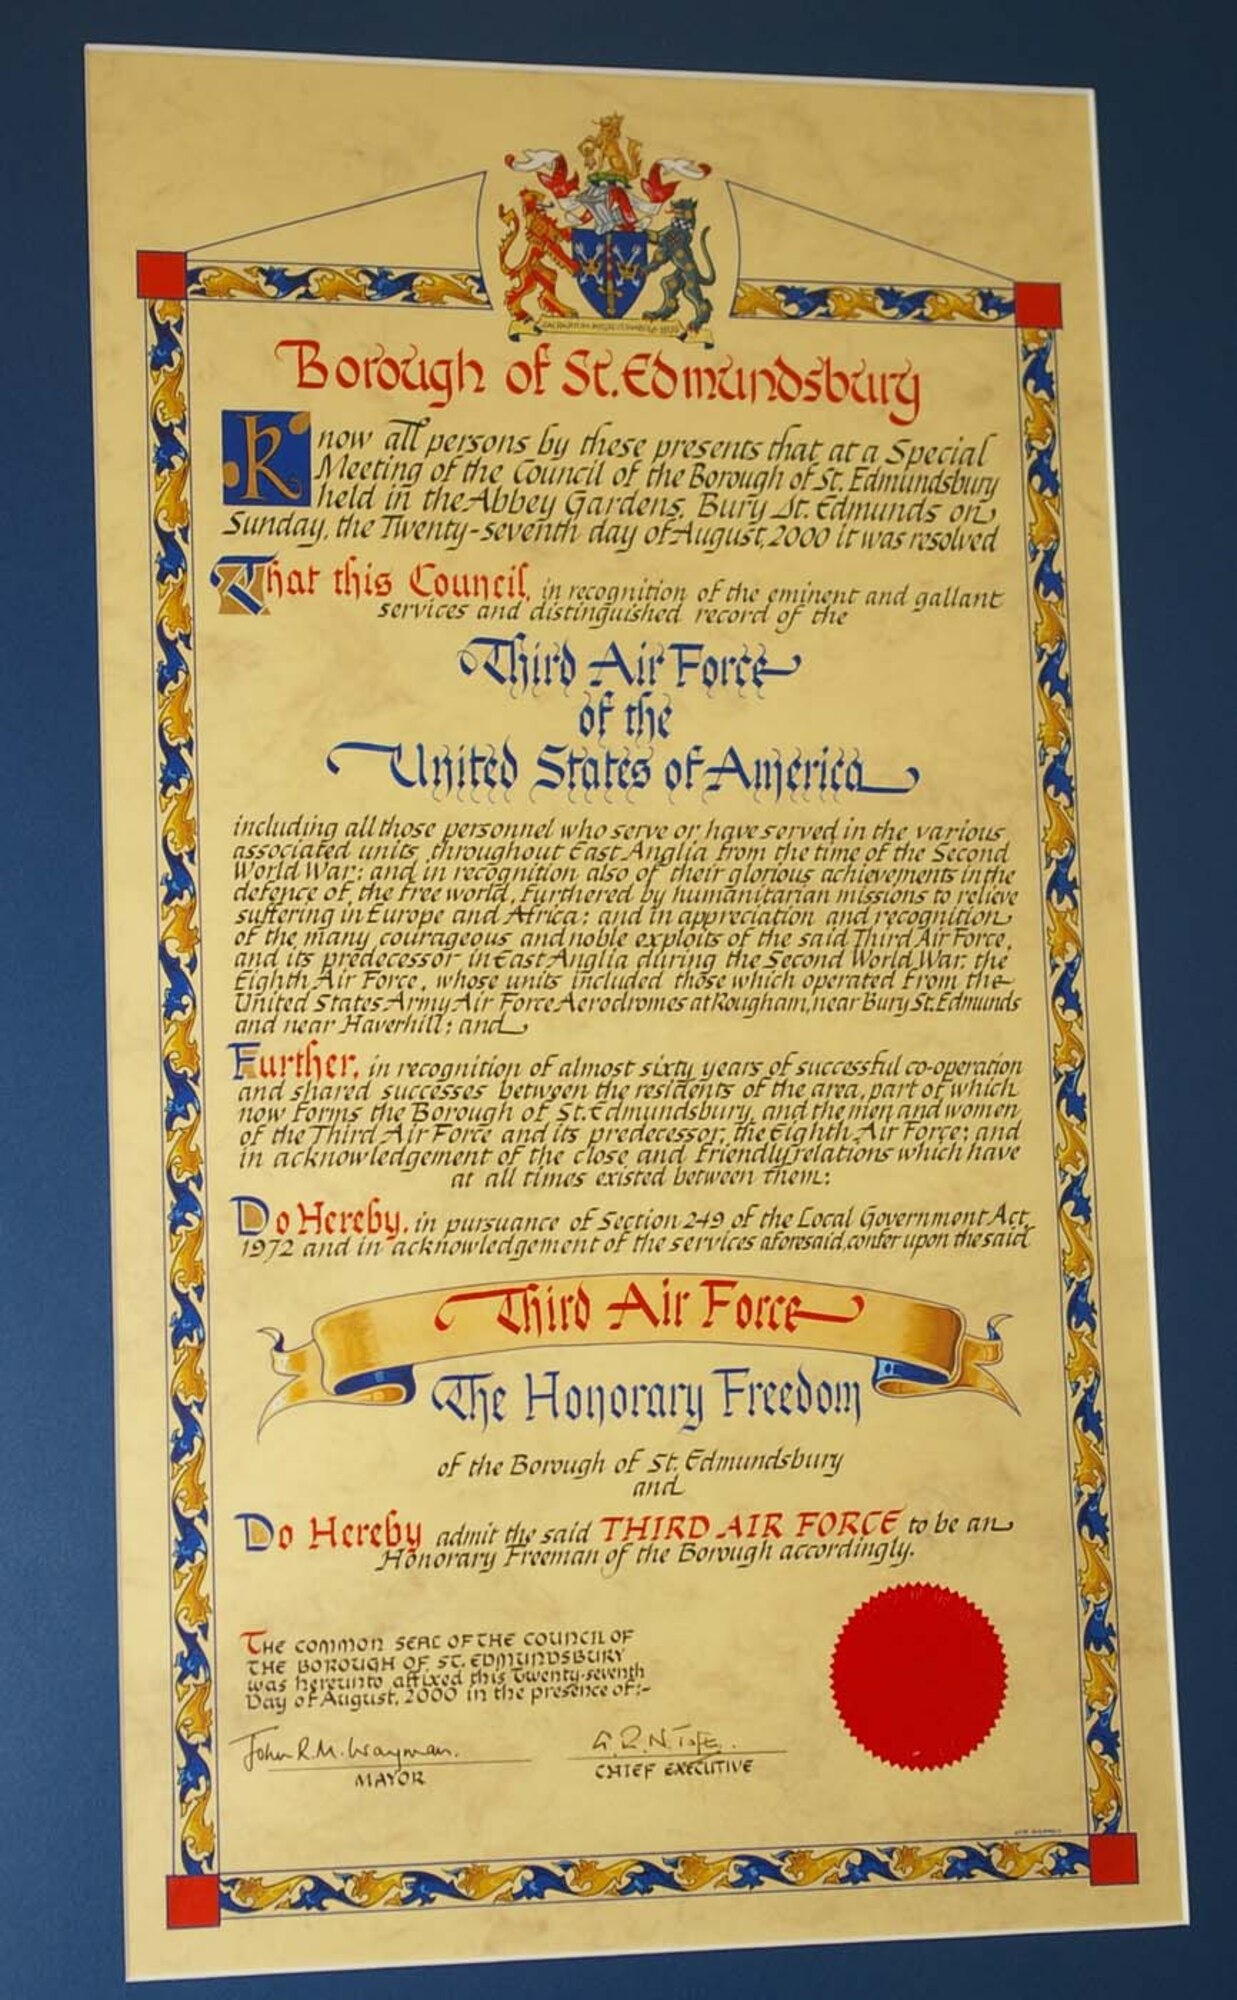 Borough of St. Edmundsbury
Know all persons by these presents that at a Special
Meeting of the Council of the Borough of St. Edmundsbury
held in the Abbey Gardens, Bury St. Edmunds on
Sunday, the Twenty-seventh day of August, 2000 it was resolved
That this Council, in recognition of the eminent and gallant
services and distinguished record of the
Third Air Force
of the
United States of America
including all those personnel who serve or have served in the various
associated units throughout East Anglia from the time of the Second
World War; and in recognition also of their glorious achievements in the
defence of the free world, furthered by humanitarian missions to relieve
suffering in Europe and Africa; and in appreciation and recognition
of the many courageous and noble exploits of the said Third Air Force,
and its predecessor in East Anglia during the Second World War, the
Eighth Air Force, whose units included those which operated from the
United States Army Air Force Aerodromes at Rougham, near Bury St. Edmunds
and near Haverhill; and
Further, in recognition of almost sixty years of successful co-operation
and shared successes between the residents of the area, part of which
now forms the Borough of St. Edmundsbury, and the men and women
of the Third Air Force and its predecessor, the Eighth Air Force; and
in acknowledgement of the close and friendly relations which have
at all times existed between them:
Do Hereby, in pursuance of Section 249 of the Local Government Act,
1972 and in acknowledgement of the services aforesaid, confer upon the said
Third Air Force
The Honorary Freedom
of the Borough of St. Edmundsbury
and
Do Hereby admit the said THIRD AIR FORCE to be an
Honorary Freeman of the Borough accordingly.
THE COMMON SEAL OF THE COUNCIL OF
THE BOROUGH OF ST. EDMUNDSBURY
was hereunto affixed this Twenty-seventh
Day of August, 2000 in the presence of:-
John R.M. Wayman.
MAYOR
CHIEF EXECUTIVE